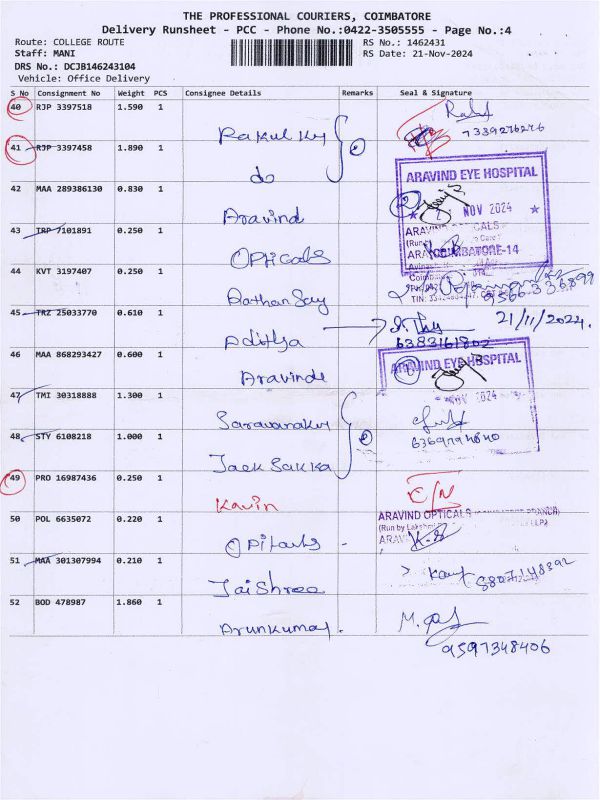 THE PROFESSIONAL COURIERS, COIMBATORE
Delivery Runsheet - PCC - Phone No.:0422-3505555 - Page No.:4
Route: COLLEGE ROUTE RS No.: 1462431
Staff: MANI RS Date: 21-Nov-2024
DRS No.: DCJB146243104
Vehicle: Office Delivery
S No Consignment No Weight PCS Consignee Details Remarks Seal & Signature
40 RJP 3397518 1.590 1
Rakul Ky 7339276276
41 RJP 3397458 1.890 1
do
ARAVIND EYE HOSPITAL
42 MAA 289386130 0.830 1
Aravind
2 NOV 2024
43 TRP 7101891 0.250 1
Opticals
COIMBATORE-14
44 KVT 3197407 0.250 1
Dathan Say
9566336899
45 TRZ 25033770 0.610 1
21/11/2024.
Adithya
6383161802
46 MAA 868293427 0.600 1
ARAVIND EYE HOSPITAL
Aravind
47 TMI 30318888 1.300 1
NOV 2024
Saravanaky
48 STY 6108218 1.000 1
Jack Sakka
49 PRO 16987436 0.250 1
Kavin C/N
50 POL 6635072 0.220 1
ARAVIND OPTICALS
(Run by Lakshmi LLP)
Opticals K.B
51 MAA 301307994 0.210 1
Jaishree 8807148392
52 BOD 478987 1.860 1
Arunkumar. M.
9597348406